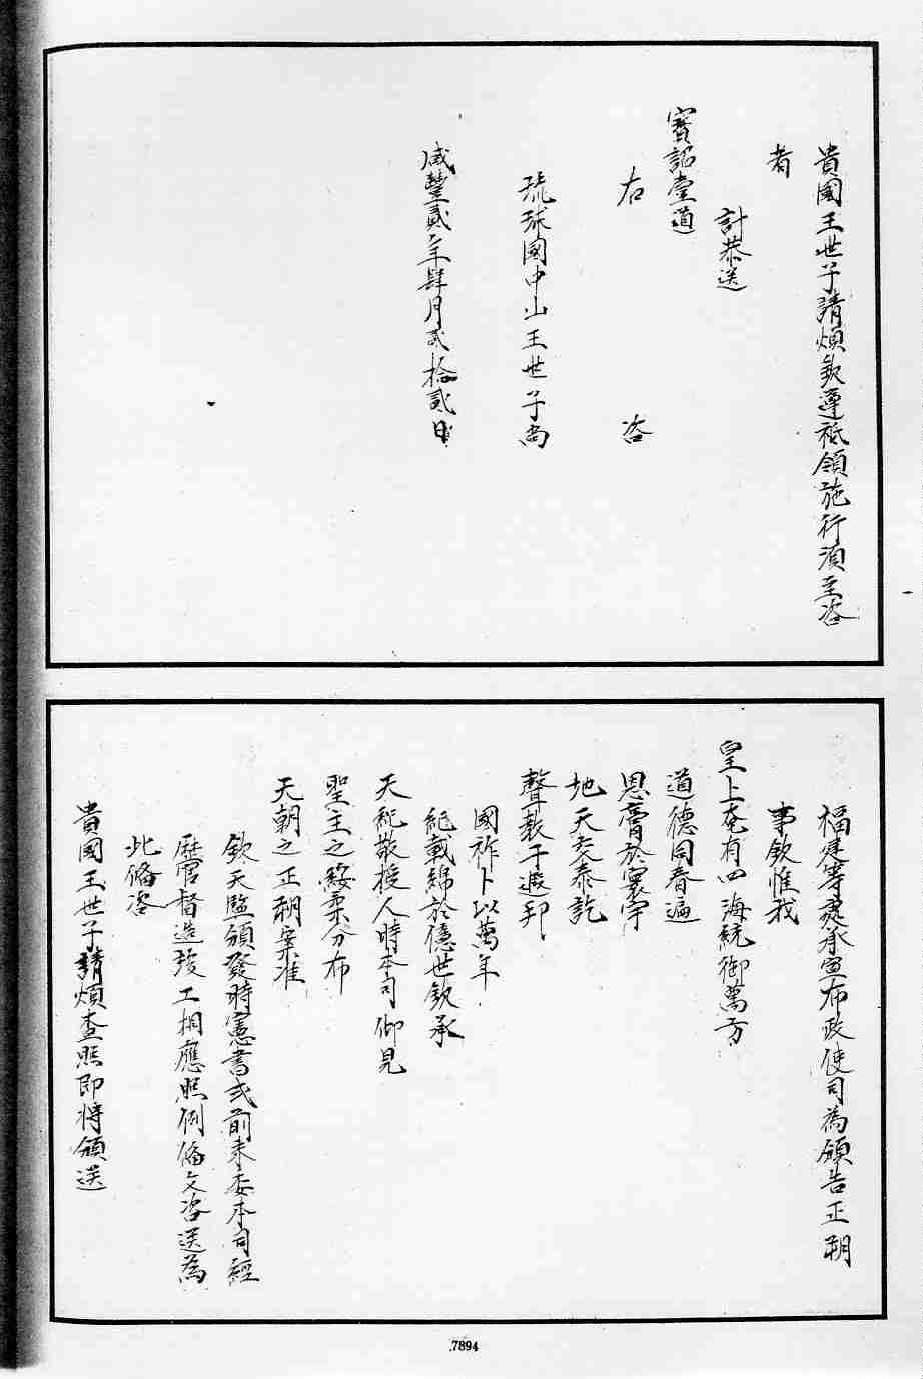 貴國王世子請煩欽遵祗領施行湏至咨
者
計恭送
寳詔壹道
右 咨
琉球國中山王世子尚
咸豐貳年肆月貳拾貳日
福建等處承宣布政使司為頒告正朔
事欽惟我
皇上奄有四海統御萬方
道德同春遍
恩膏於寰宇
地天交泰訖
聲教于遐邦
國祚卜以萬年
紀載綿於億世欽承
天紀敬授人時本司仰見
聖主之綏柔分布
天朝之正朔案准
欽天監頒發時憲書式前来委本司經
歴官督造竣工相應照例俻文咨送為
此俻咨
貴國王世子請煩查照即将頒送
7894